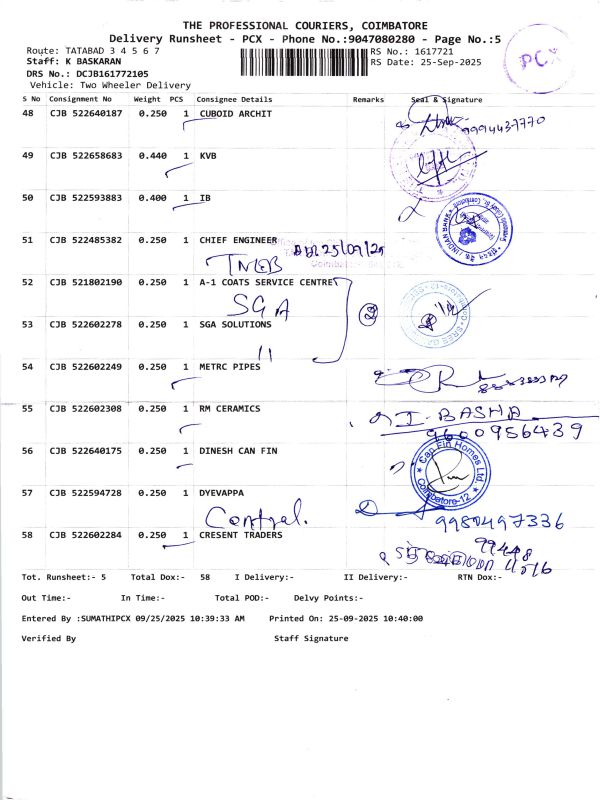 THE PROFESSIONAL COURIERS, COIMBATORE
Delivery Runsheet - PCX - Phone No.:9047080280 - Page No.:5
PCX
Route: TATABAD 3 4 5 6 7
RS No.: 1617721
Staff: K BASKARAN
RS Date: 25-Sep-2025
DRS No.: DCJB161772105
Vehicle: Two Wheeler Delivery
S No Consignment No Weight PCS Consignee Details Remarks Seal & Signature
48 CJB 522640187 0.250 1 CUBOID ARCHIT
9994437770
49 CJB 522658683 0.440 1 KVB
50 CJB 522593883 0.400 1 IB
INDIAN BANK
51 CJB 522485382 0.250 1 CHIEF ENGINEER
25/09/25
TNEB
52 CJB 521802190 0.250 1 A-1 COATS SERVICE CENTRE
SGA
2
53 CJB 522602278 0.250 1 SGA SOLUTIONS
54 CJB 522602249 0.250 1 METRC PIPES
55 CJB 522602308 0.250 1 RM CERAMICS
I. BASHA
9600956439
56 CJB 522640175 0.250 1 DINESH CAN FIN
Can Fin Homes Ltd.
Coimbatore-12
57 CJB 522594728 0.250 1 DYEVAPPA
Central.
9980497336
58 CJB 522602284 0.250 1 CRESENT TRADERS
99448
Tot. Runsheet:- 5 Total Dox:- 58 I Delivery:- II Delivery:- RTN Dox:-
Out Time:- In Time:- Total POD:- Delvy Points:-
Entered By :SUMATHIPCX 09/25/2025 10:39:33 AM Printed On: 25-09-2025 10:40:00
Verified By Staff Signature